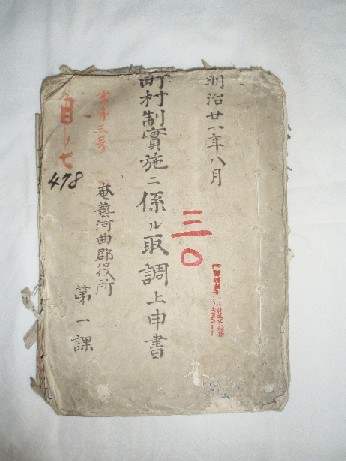 明治廿一年八月
町村制實施ニ係ル取調上申書
三〇
奄藝河曲郡役所
第一課
第三号
日ノ七
478